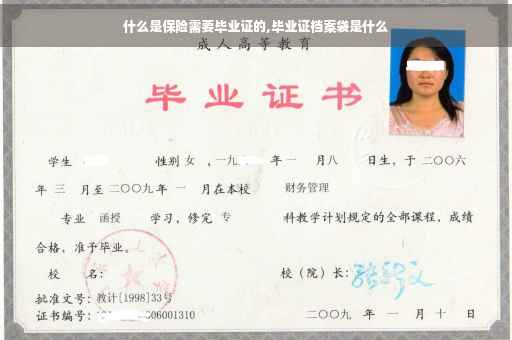 什么是保险需要毕业证的,毕业证档案袋是什么
成人高等教育
毕业证书
学生 性别 女 ，一九 年 一 月 八 日生，于 二〇〇六
年 三 月至 二〇〇九 年 一 月在本校 财务管理
专业 函授 学习，修完 专 科教学计划规定的全部课程，成绩
合格，准予毕业。
校 名： 校（院）长：
批准文号：教计[1998]33号
证书编号： 06001310 二〇〇九 年 一 月 十 日